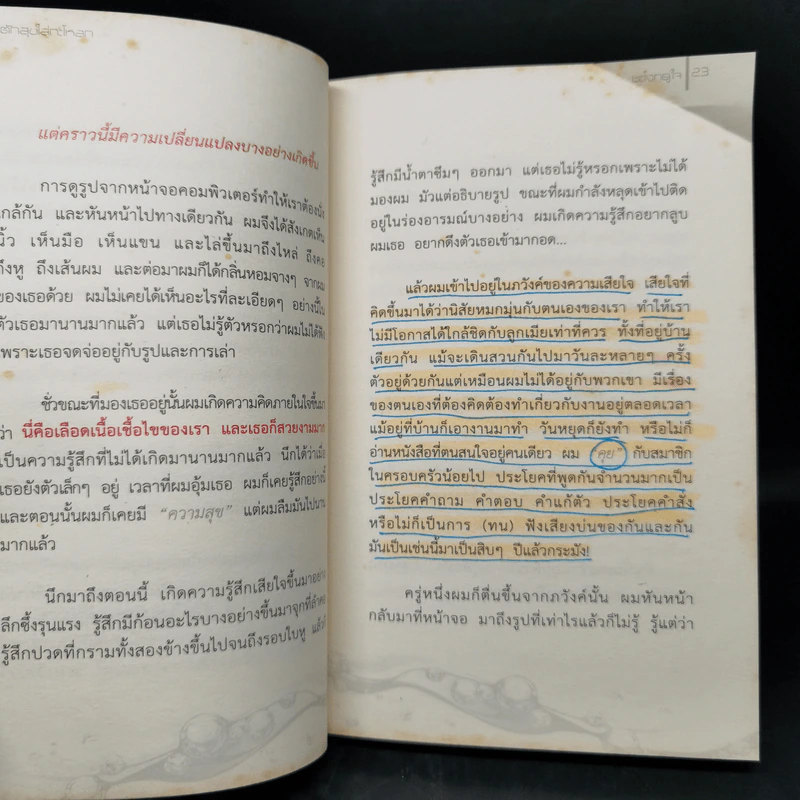 แต่คราวนี้มีความเปลี่ยนแปลงบางอย่างเกิดขึ้น
การดูรูปจากหน้าจอคอมพิวเตอร์ทำให้เราต้องนั่ง
ใกล้กัน และหันหน้าไปทางเดียวกัน ผมจึงได้สังเกตเห็น
นิ้ว เห็นมือ เห็นแขน และไล่ขึ้นมาถึงไหล่ ถึงคอ
ถึงหู ถึงเส้นผม และต่อมาผมก็ได้กลิ่นหอมจางๆ จากผม
ของเธอด้วย ผมไม่เคยได้เห็นอะไรที่ละเอียดๆ อย่างนี้ใน
ตัวเธอมานานมากแล้ว แต่เธอไม่รู้ตัวหรอกว่าผมไม่ได้ฟัง
เพราะเธอจดจ่ออยู่กับรูปและการเล่า
ชั่วขณะที่มองเธออยู่นั้นผมเกิดความคิดภายในใจขึ้นมา
ว่า นี่คือเลือดเนื้อเชื้อไขของเรา และเธอก็สวยงามมาก
เป็นความรู้สึกที่ไม่ได้เกิดมานานมากแล้ว นึกได้ว่าเมื่อ
เธอยังตัวเล็กๆ อยู่ เวลาที่ผมอุ้มเธอ ผมก็เคยรู้สึกอย่างนี้
และตอนนั้นผมก็เคยมี “ความสุข” แต่ผมลืมมันไปนาน
มากแล้ว
นึกมาถึงตอนนี้ เกิดความรู้สึกเสียใจขึ้นมาอย่าง
ลึกซึ้งรุนแรง รู้สึกมีก้อนอะไรบางอย่างขึ้นมาจุกที่ลำคอ
รู้สึกปวดที่กรามทั้งสองข้างขึ้นไปจนถึงรอบใบหู แล้วก็
23
รู้สึกมีน้ำตาซึมๆ ออกมา แต่เธอไม่รู้หรอกเพราะไม่ได้
มองผม มัวแต่อธิบายรูป ขณะที่ผมกำลังหลุดเข้าไปติด
อยู่ในร่องอารมณ์บางอย่าง ผมเกิดความรู้สึกอยากลูบ
ผมเธอ อยากดึงตัวเธอเข้ามากอด...
แล้วผมเข้าไปอยู่ในภวังค์ของความเสียใจ เสียใจที่
คิดขึ้นมาได้ว่านิสัยหมกมุ่นกับตนเองของเรา ทำให้เรา
ไม่มีโอกาสได้ใกล้ชิดกับลูกเมียเท่าที่ควร ทั้งที่อยู่บ้าน
เดียวกัน แม้จะเดินสวนกันไปมาวันละหลายๆ ครั้ง
ตัวอยู่ด้วยกันแต่เหมือนผมไม่ได้อยู่กับพวกเขา มีเรื่อง
ของตนเองที่ต้องคิดต้องทำเกี่ยวกับงานอยู่ตลอดเวลา
แม้อยู่ที่บ้านก็เอางานมาทำ วันหยุดก็ยังทำ หรือไม่ก็
อ่านหนังสือที่ตนสนใจอยู่คนเดียว ผม “คุย” กับสมาชิก
ในครอบครัวน้อยไป ประโยคที่พูดกันจำนวนมากเป็น
ประโยคคำถาม คำตอบ คำแก้ตัว ประโยคคำสั่ง
หรือไม่ก็เป็นการ (ทน) ฟังเสียงบ่นของกันและกัน
มันเป็นเช่นนี้มาเป็นสิบๆ ปีแล้วกระมัง!
ครู่หนึ่งผมก็ตื่นขึ้นจากภวังค์นั้น ผมหันหน้า
กลับมาที่หน้าจอ มาถึงรูปที่เท่าไรแล้วก็ไม่รู้ รู้แต่ว่า